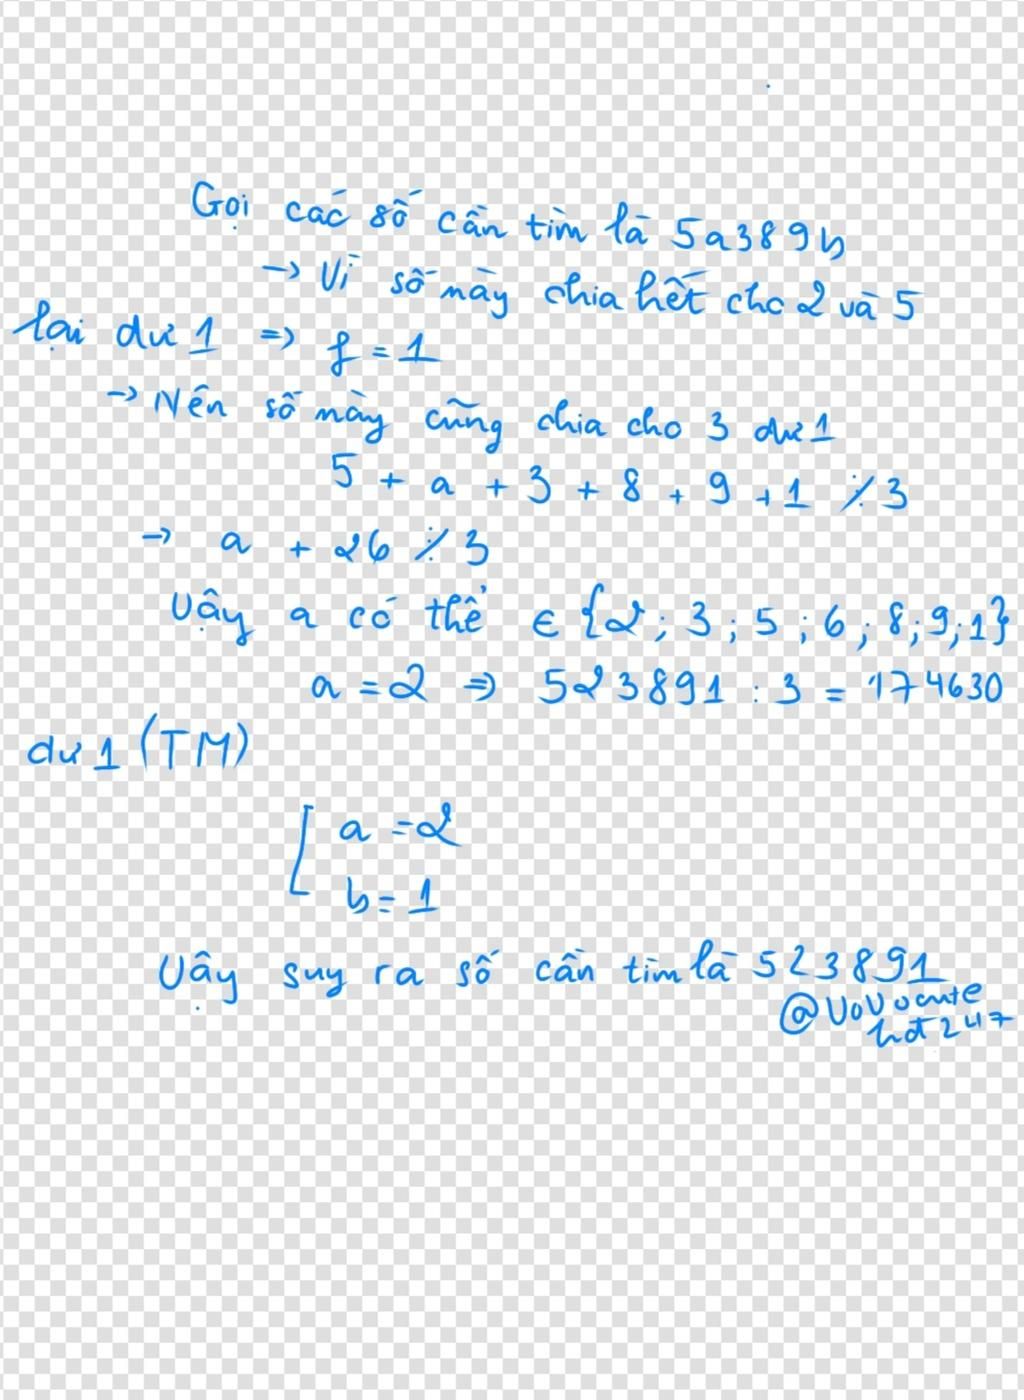 Gọi các số cần tìm là 5a389b
→ Vì số này chia hết cho 2 và 5
lại dư 1 => f = 1
→ Nên số này cũng chia cho 3 dư 1
5 + a + 3 + 8 + 9 + 1 ⋮̸ 3
→ a + 26 ⋮̸ 3
Vậy a có thể ∈ {2; 3; 5; 6; 8; 9; 1}
a = 2 => 523891 : 3 = 174630
dư 1 (TM)
[ a = 2
b = 1
Vậy suy ra số cần tìm là 523891
@VoVocute
hot247